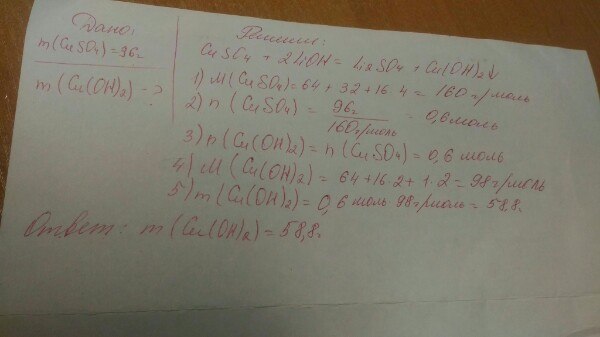 Дано:
m(CuSO4)=96г
m(Cu(OH)2) - ?
Решение:
CuSO4 + 2LiOH = Li2SO4 + Cu(OH)2↓
1) M(CuSO4) = 64 + 32 + 16 · 4 = 160 г/моль
2) n(CuSO4) = 96г / 160г/моль = 0,6 моль
3) n(Cu(OH)2) = n(CuSO4) = 0,6 моль
4) M(Cu(OH)2) = 64 + 16 · 2 + 1 · 2 = 98 г/моль
5) m(Cu(OH)2) = 0,6 моль · 98 г/моль = 58,8г
Ответ: m(Cu(OH)2) = 58,8г